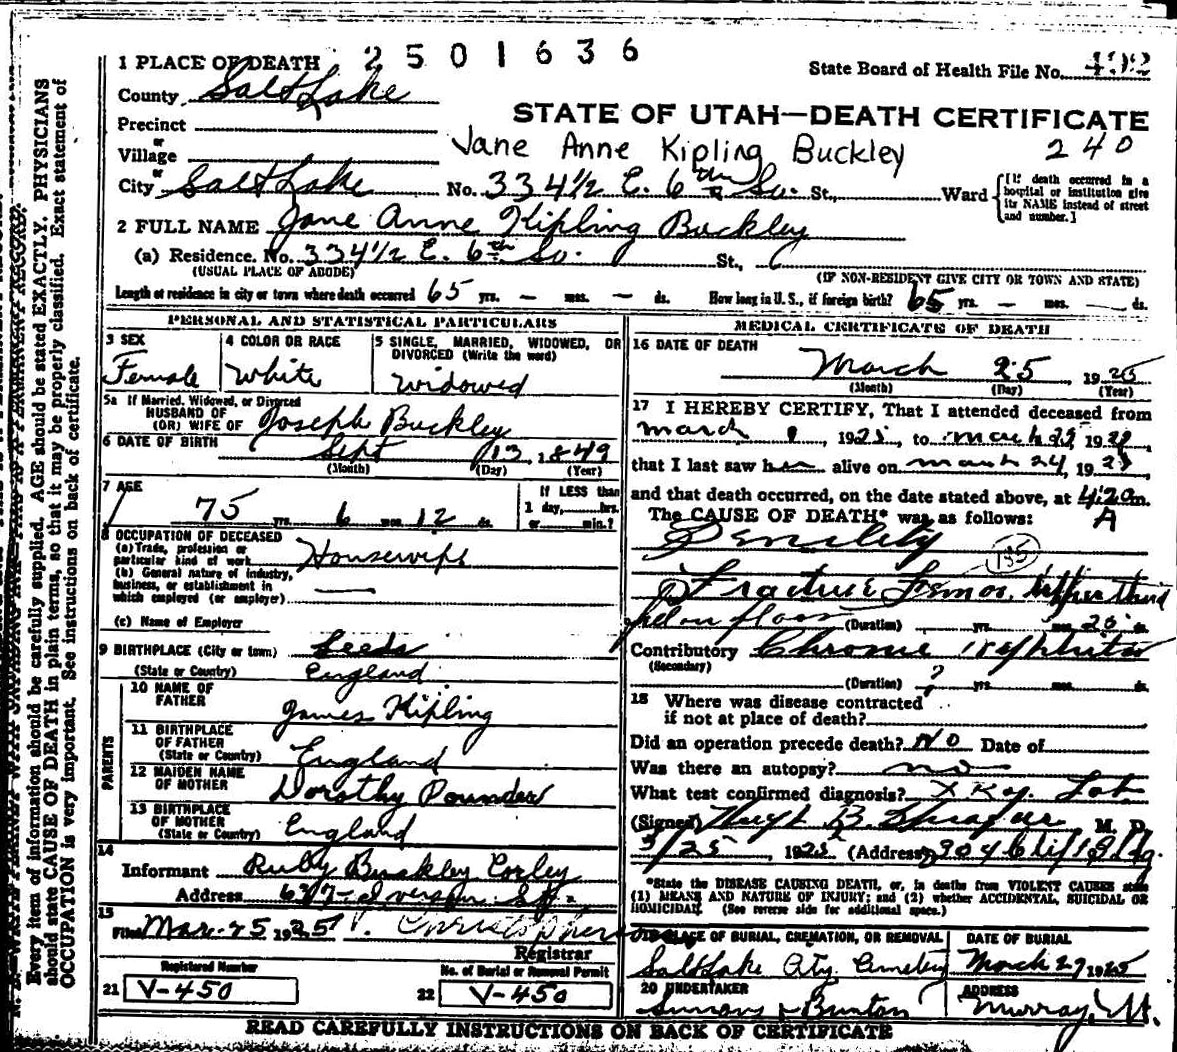 2501636
1 PLACE OF DEATH
State Board of Health File No.
County Salt Lake
STATE OF UTAH—DEATH CERTIFICATE
Precinct
Jane Anne Kipling Buckley 240
or
Village
or
City Salt Lake No. 334 1/2 E. 6th So. St., Ward
[If death occurred in a hospital or institution give its NAME instead of street and number.]
2 FULL NAME Jane Anne Kipling Buckley
(a) Residence. No. 334 1/2 E. 6th So. St.,
(USUAL PLACE OF ABODE) (IF NON-RESIDENT GIVE CITY OR TOWN AND STATE)
Length of residence in city or town where death occurred 65 yrs. — mos. — ds. How long in U. S., if foreign birth? 65 yrs. — mos. — ds.
PERSONAL AND STATISTICAL PARTICULARS
3 SEX
Female
4 COLOR OR RACE
White
5 SINGLE, MARRIED, WIDOWED, OR
DIVORCED (Write the word)
Widowed
5a If Married, Widowed, or Divorced
HUSBAND OF
(OR) WIFE OF Joseph Buckley
6 DATE OF BIRTH Sept 13, 1849
(Month) (Day) (Year)
7 AGE
75 yrs. 6 mos. 12 ds.
If LESS than
1 day, hrs.
or min.?
8 OCCUPATION OF DECEASED
(a) Trade, profession or
particular kind of work Housewife
(b) General nature of industry,
business, or establishment in
which employed (or employer) —
(c) Name of Employer
9 BIRTHPLACE (City or town) Leeds
(State or Country) England
PARENTS
10 NAME OF
FATHER James Kipling
11 BIRTHPLACE
OF FATHER
(State or Country) England
12 MAIDEN NAME
OF MOTHER Dorothy Pounder
13 BIRTHPLACE
OF MOTHER
(State or Country) England
14
Informant Ruby Buckley Corley
Address 637 - Iverson St.
15
Filed Mar-25 1925
Registrar
Registered Number
21 V-450
No. of Burial or Removal Permit
22 V-450
MEDICAL CERTIFICATE OF DEATH
16 DATE OF DEATH
March 25, 1925
(Month) (Day) (Year)
17 I HEREBY CERTIFY, That I attended deceased from
March 1, 1925, to March 25 1925
that I last saw her alive on March 24, 1925
and that death occurred, on the date stated above, at 4:20 m.
A
The CAUSE OF DEATH* was as follows:
Senility
185
Fracture Femor, Upper third
fel on floor (Duration) yrs. mos. 25 ds.
Contributory Chronic nephritis
(Secondary)
(Duration) ? yrs. mos. ds.
18 Where was disease contracted
if not at place of death?
Did an operation precede death? No Date of
Was there an autopsy? no
What test confirmed diagnosis? X Ray. Lab.
(Signed) Hugh B. M. D.
3/25, 1925 (Address) 304 Clift Bldg.
*State the DISEASE CAUSING DEATH, or, in deaths from VIOLENT CAUSES state
(1) MEANS AND NATURE OF INJURY; and (2) whether ACCIDENTAL, SUICIDAL OR
HOMICIDAL (See reverse side for additional space.)
19 PLACE OF BURIAL, CREMATION, OR REMOVAL
Salt Lake City Cemetery
DATE OF BURIAL
March 27 1925
20 UNDERTAKER
ADDRESS
Murray, Ut.
READ CAREFULLY INSTRUCTIONS ON BACK OF CERTIFICATE
Every item of information should be carefully supplied. AGE should be stated EXACTLY. PHYSICIANS
should state CAUSE OF DEATH in plain terms, so that it may be properly classified. Exact statement of
OCCUPATION is very important. See instructions on back of certificate.